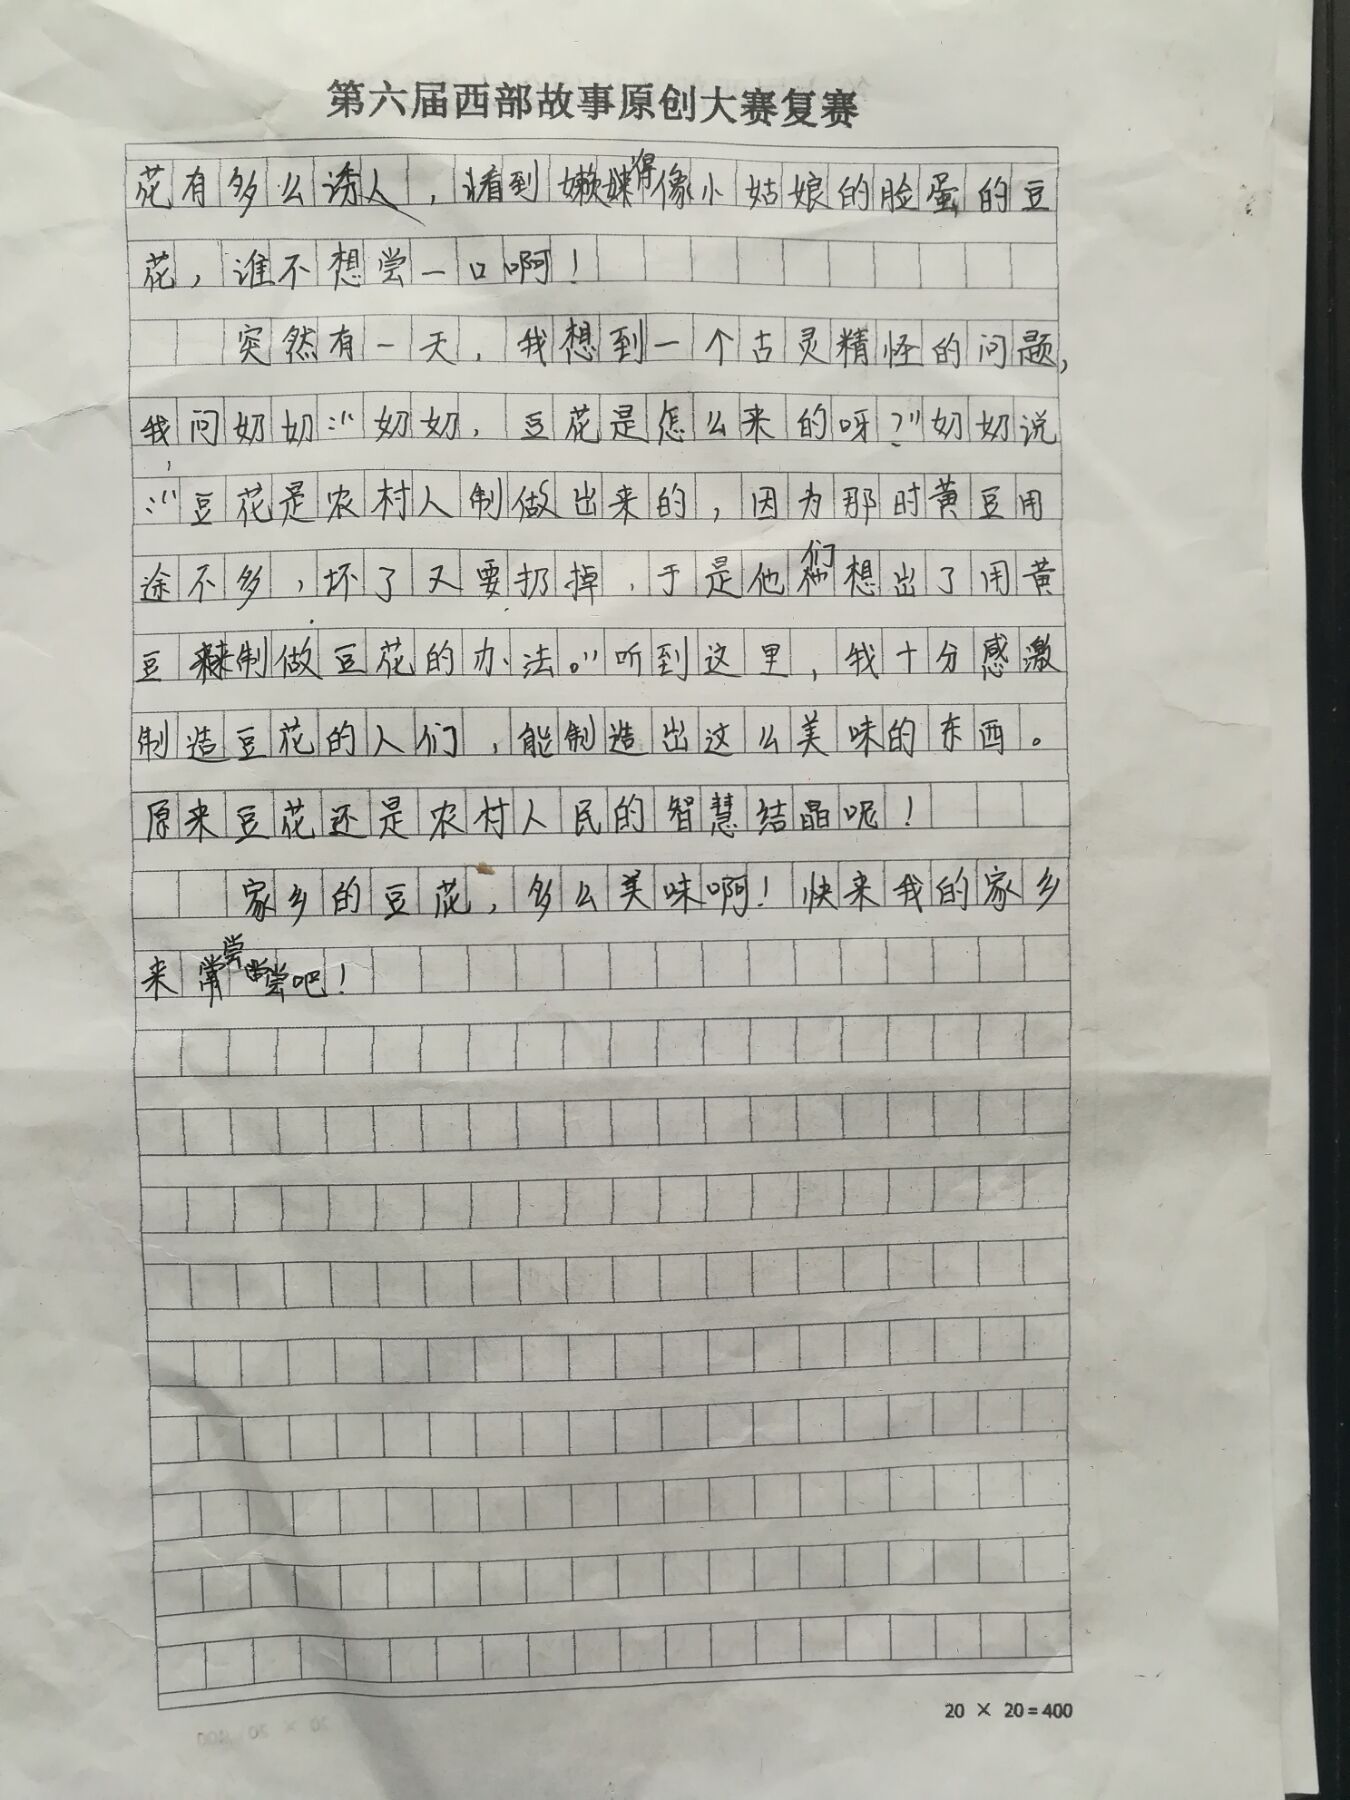 第六届西部故事原创大赛复赛
花有多么诱人，看到嫩嫩得像小姑娘的脸蛋的豆
花，谁不想尝一口啊！
突然有一天，我想到一个古灵精怪的问题，
我问奶奶：“奶奶，豆花是怎么来的呀？”奶奶说
：“豆花是农村人制做出来的，因为那时黄豆用
途不多，坏了又要扔掉，于是他们想出了用黄
豆来制做豆花的办法。”听到这里，我十分感激
制造豆花的人们，能制造出这么美味的东西。
原来豆花还是农村人民的智慧结晶呢！
家乡的豆花，多么美味啊！快来我的家乡
来尝尝吧！
20 × 20=400